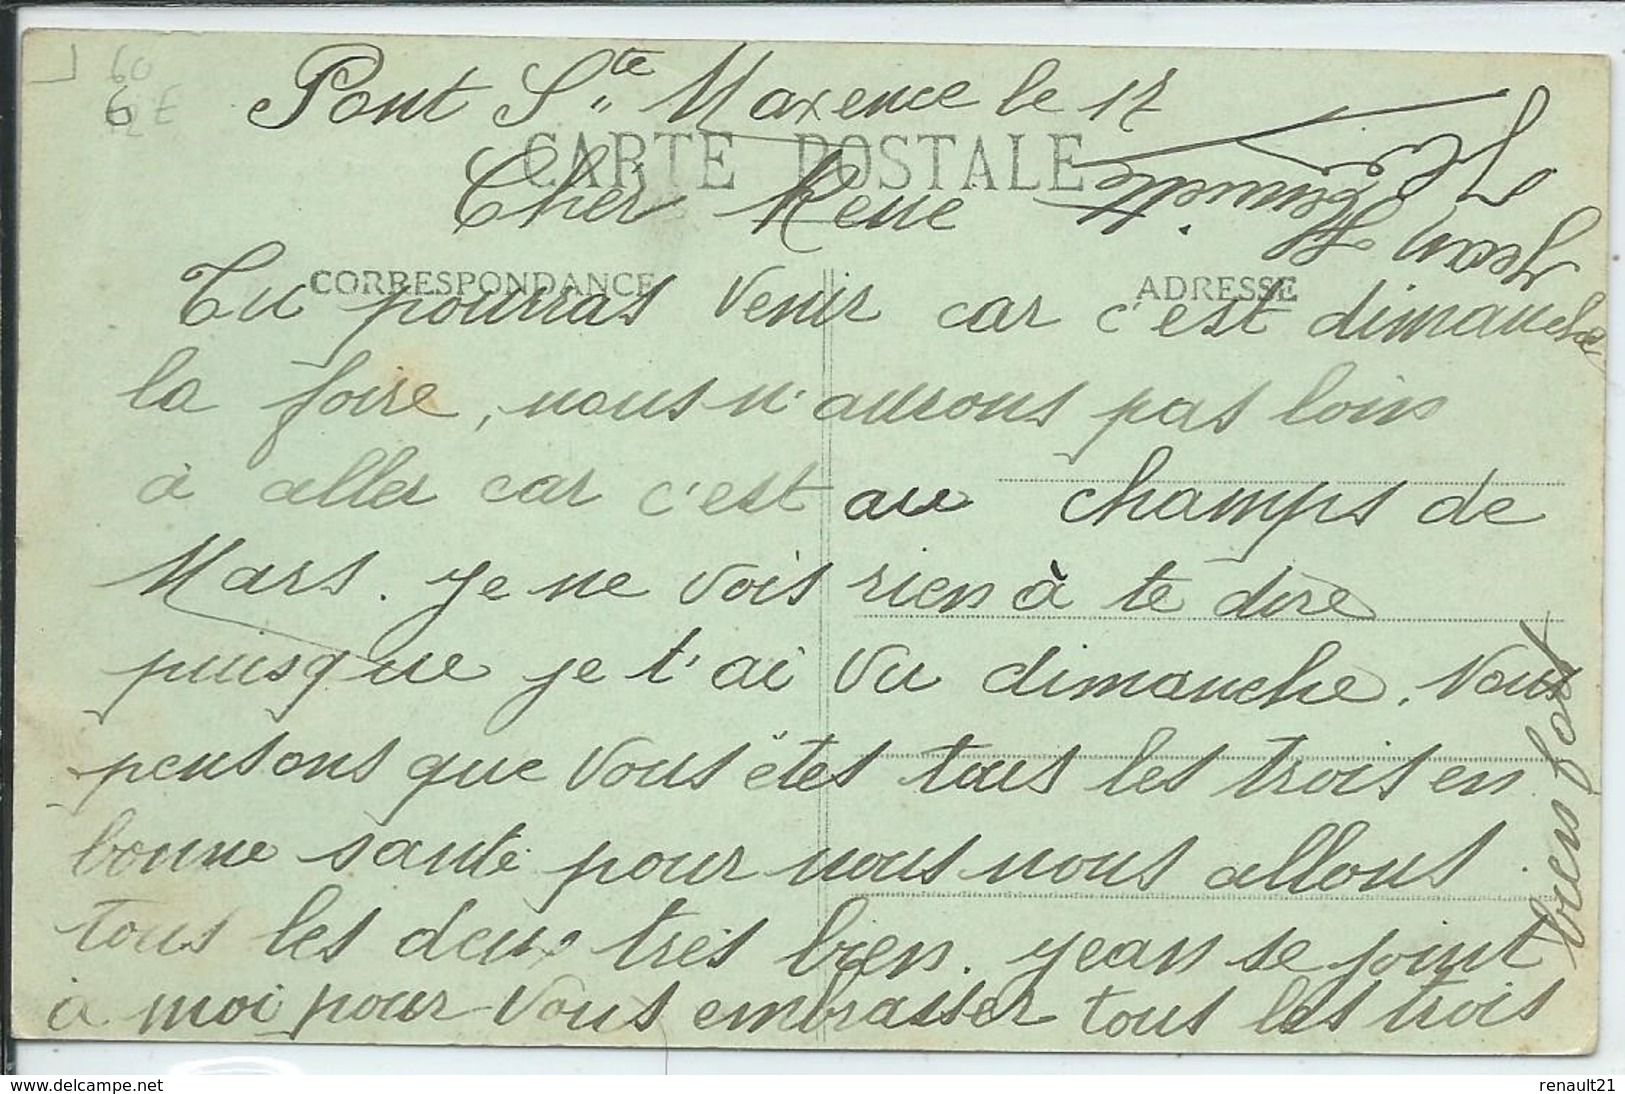 60
6 2E
Pont Ste Maxence le 17
CARTE POSTALE
Cher Rene
CORRESPONDANCE
ADRESSE
Tu pourras venir car c'est dimanche
la foire, nous n'aurons pas loin
à aller car c'est au champs de
Mars. je ne vois rien à te dire
puisque je t'ai vu dimanche. Nous
pensons que vous êtes tous les trois en
bonne santé pour nous nous allons
tous les deux très bien. Jean se joint
à moi pour vous embrasser tous les trois
bien fort
Jean
www.delcampe.net
renault21